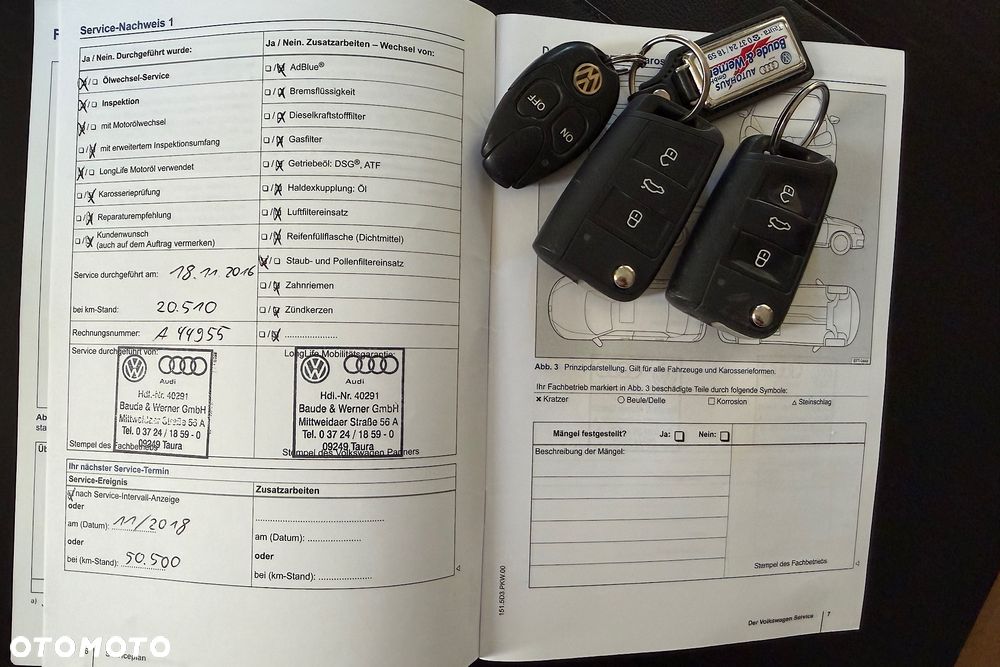 Service-Nachweis 1
Ja / Nein. Durchgeführt wurde:
Ölwechsel-Service
Inspektion
mit Motorölwechsel
mit erweitertem Inspektionsumfang
LongLife Motoröl verwendet
Karosserieprüfung
Reparaturempfehlung
Kundenwunsch
(auch auf dem Auftrag vermerken)
Service durchgeführt am: 18.11.2016
bei km-Stand: 20.510
Rechnungsnummer: A 44955
Service durchgeführt von:
Audi
Hdl.-Nr. 40291
Baude & Werner GmbH
Mittweidaer Straße 56 A
Tel. 0 37 24 / 18 59 - 0
09249 Taura
Stempel des Fachbetriebs
Ja / Nein. Zusatzarbeiten – Wechsel von:
AdBlue®
Bremsflüssigkeit
Dieselkraftstofffilter
Gasfilter
Getriebeöl: DSG®, ATF
Haldexkupplung: Öl
Luftfiltereinsatz
Reifenfüllflasche (Dichtmittel)
Staub- und Pollenfiltereinsatz
Zahnriemen
Zündkerzen
LongLife Mobilitätsgarantie:
Audi
Hdl.-Nr. 40291
Baude & Werner GmbH
Mittweidaer Straße 56 A
Tel. 0 37 24 / 18 59 - 0
09249 Taura
Stempel des Volkswagen Partners
Ihr nächster Service-Termin
Service-Ereignis
nach Service-Intervall-Anzeige
oder
am (Datum): 11/2018
oder
bei (km-Stand): 50.500
Zusatzarbeiten
am (Datum):
oder
bei (km-Stand):
OTOMOTO
OFF
ON
AUTOHAUS
Baude & Werner
GmbH
Taura 0 37 24 / 18 59
Abb. 3 Prinzipdarstellung. Gilt für alle Fahrzeuge und Karosserieformen.
Ihr Fachbetrieb markiert in Abb. 3 beschädigte Teile durch folgende Symbole:
Kratzer
Beule/Delle
Korrosion
Steinschlag
Mängel festgestellt? Ja: Nein:
Beschreibung der Mängel:
Stempel des Fachbetriebs
151.5D3.PKW.00
Der Volkswagen Service 7